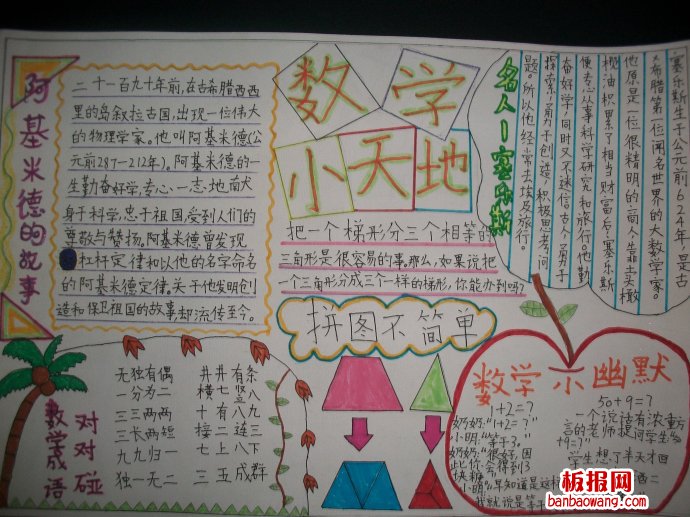 阿基米德的故事
二千一百九十年前,在古希腊西西
里的岛叙拉古国,出现一位伟大
的物理学家。他叫阿基米德(公
元前287-212年)。阿基米德的一
生勤奋好学,专心一志,地献
身于科学,忠于祖国,受到人们的
尊敬与赞扬。阿基米德曾发现
杠杆定律和以他的名字命名
的阿基米德定律,关于他发明创
造和保卫祖国的故事却流传至今。
数学
小天地
把一个梯形分三个相等的
三角形是很容易的事,那么,如果说把
一个三角形分成三个一样的梯形,你能办到吗?
拼图不简单
名人—塞乐斯
塞乐斯生于公元前624年,是古
希腊第一位闻名世界的大数学家。
他原是一位很精明的商人,靠卖橄
榄油积累了相当财富后,塞乐斯
便专心从事科学研究和旅行。他勤
奋好学,同时又不迷信古人,勇于
探索,勇于创造,积极思考问
题。所以他经常去埃及旅行。
数学成语
对对碰
无独有偶 井井有条
一分为二 横七竖八
三三两两 十有八九
三长两短 接二连三
九九归一 七上八下
独一无二 三五成群
数学小幽默
1+2=?
奶奶:"1+2=?"
小明:"等于3。"
奶奶:"很好,因
此你会得到3
块糖。"
小明:"早知道是这样
我就说是等于
50+9=?
一个说话有浓重方
言的老师提问学生:"
+9=?"
学生想了半天才回
板报网
banbaowang.com